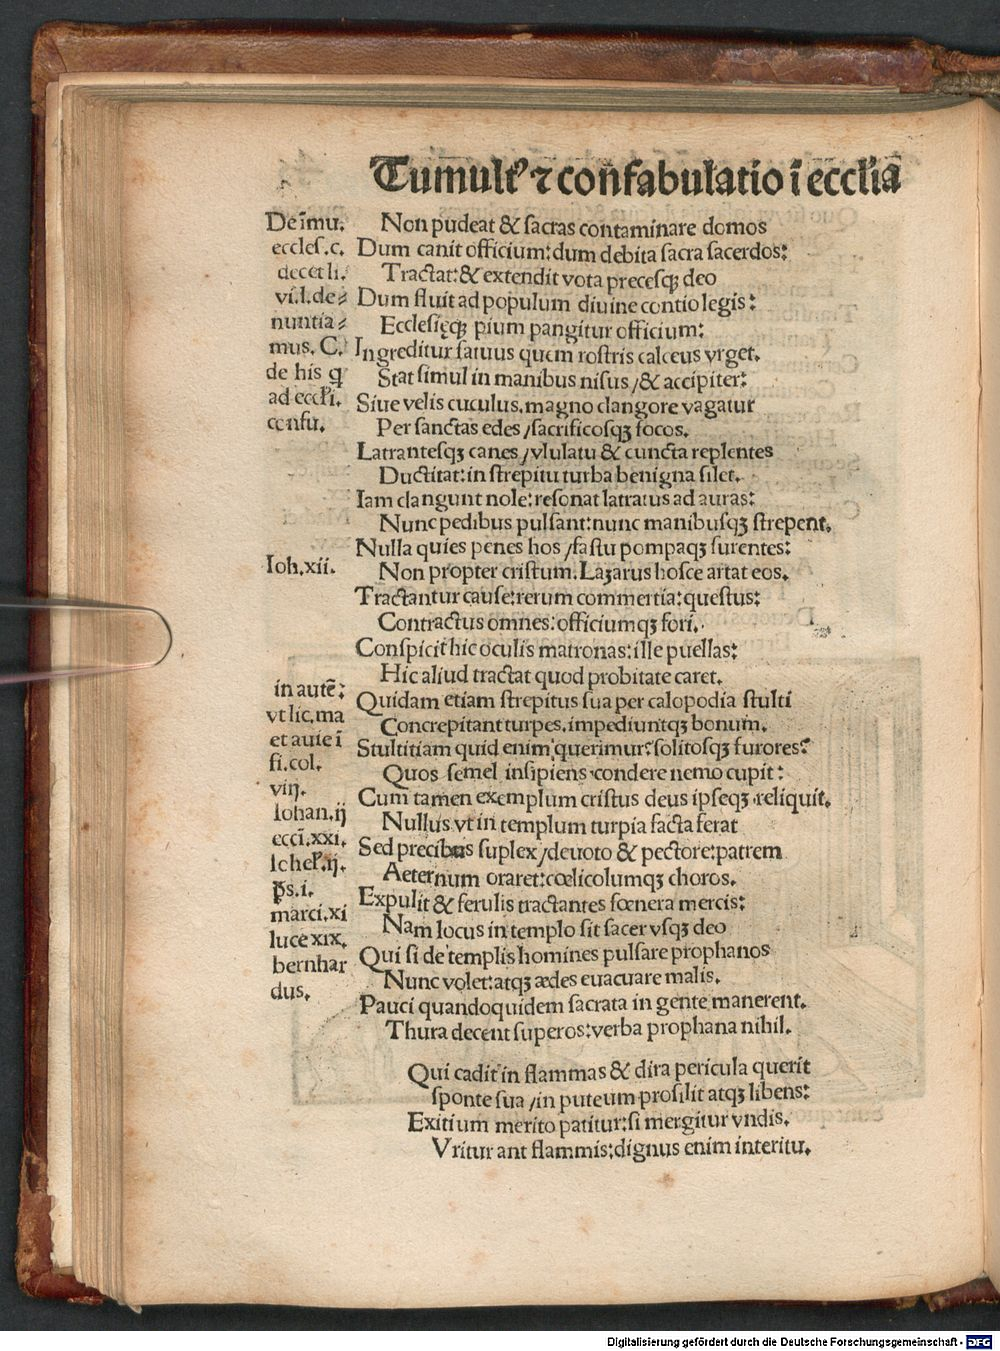 Tumultꝰ ⁊ confabulatio ī eccl̄ia
De īmu.
eccles. c.
decet li.
vi. l. de⸗
nuntia⸗
mus. C.
de his q̄
ad eccl̄i.
confu.
Ioh. xii.
in autē:
vt lic. ma
et auie ī
fi. col.
viij.
Iohan. ij
ecci. xxi.
ps. i.
marci. xi
luce xix.
bernhar
dus.
Non pudeat & sacras contaminare domos
Dum canit officium: dum debita sacra sacerdos:
Tractat: & extendit vota precesqꝫ deo
Dum fluit ad populum diuine contio legis:
Ecclesięqꝫ pium pangitur officium:
Ingreditur fatuus quem rostris calceus vrget.
Stat simul in manibus nisus / & accipiter:
Siue velis cuculus. magno clangore vagatur
Per sanctas edes / sacrificosqꝫ focos.
Latrantesqꝫ canes / vlulatu & cuncta replentes
Ductitat: in strepitu turba benigna silet.
Iam clangunt nole: resonat latratus ad auras:
Nunc pedibus pulsant: nunc manibusqꝫ strepent.
Nulla quies penes hos / fastu pompaqꝫ furentes:
Non propter cristum. Lazarus hosce artat eos.
Tractantur cause: rerum commertia: questus:
Contractus omnes: officiumqꝫ fori.
Conspicit hic oculis matronas: ille puellas:
Hic aliud tractat quod probitate caret.
Quidam etiam strepitus sua per calopodia stulti
Concrepitant turpes. impediuntqꝫ bonum.
Stultitiam quid enim querimur: solitosqꝫ furores?
Quos semel insipiens condere nemo cupit:
Cum tamen exemplum cristus deus ipseqꝫ reliquit.
Nullus vt in templum turpia facta ferat
Sed precibus suplex / deuoto & pectore: patrem
Aeternum oraret: cœlicolumqꝫ choros.
Expulit & ferulis tractantes fœnera mercis:
Nam locus in templo sit sacer vsqꝫ deo
Qui si de templis homines pulsare prophanos
Nunc volet: atqꝫ ædes euacuare malis.
Pauci quandoquidem sacrata in gente manerent.
Thura decent superos: verba prophana nihil.
Qui cadit in flammas & dira pericula querit
sponte sua / in puteum prosilit atqꝫ libens:
Exitium merito patitur: si mergitur vndis.
Vritur ant flammis: dignus enim interitu.
Digitalisierung gefördert durch die Deutsche Forschungsgemeinschaft - DFG